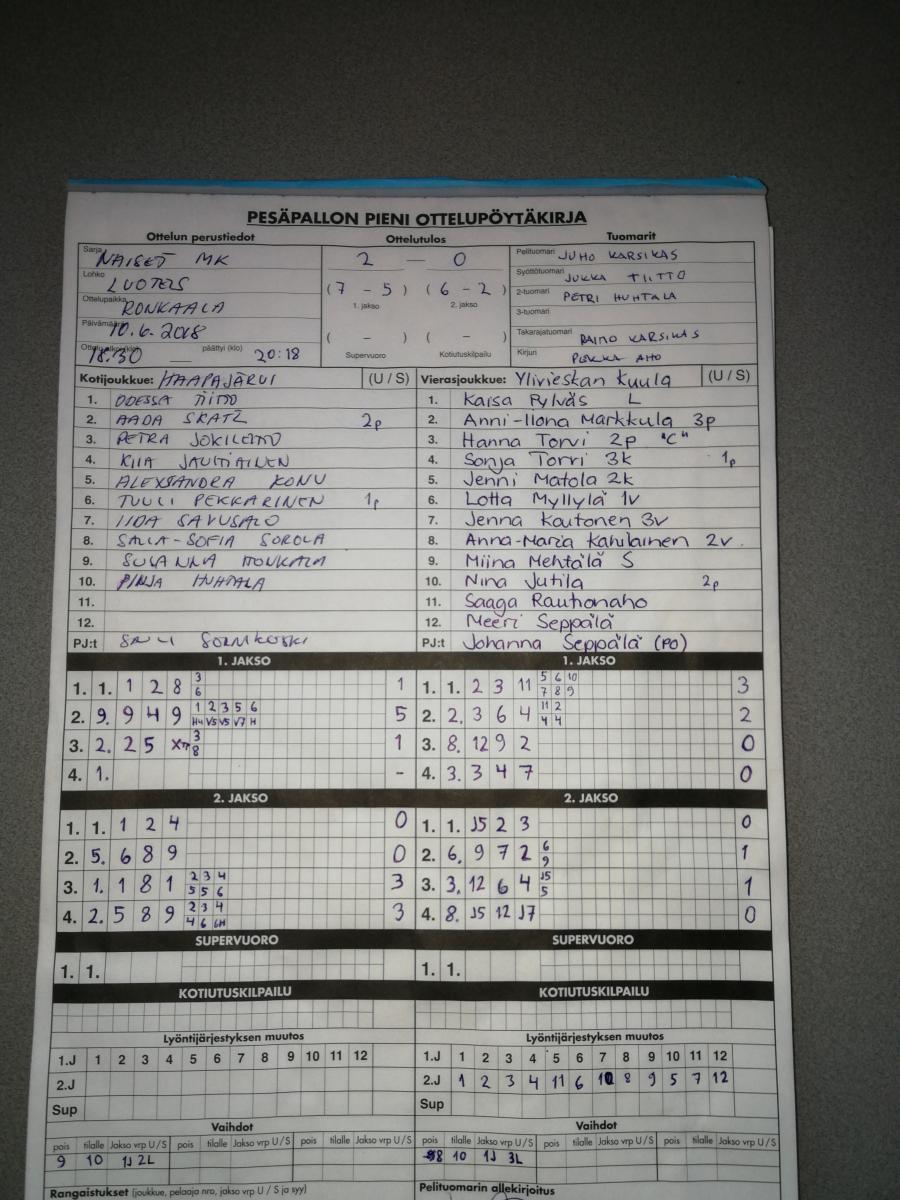 PESÄPALLON PIENI OTTELUPÖYTÄKIRJA
Ottelun perustiedot Ottelutulos Tuomarit
Sarja NAISET MK 2 — 0 Pelituomari JUHO KARSIKAS
Lohko LUOTEIS (7 - 5) (6 - 2) Syöttötuomari JUKKA TIITTO
Ottelupaikka RONKAALA 1. jakso 2. jakso 2-tuomari PETRI HUHTALA
3-tuomari
Päivämäärä 10.6.2018 ( - ) ( - ) Takarajatuomari RAIMO KARSIKAS
18.30 päättyi (klo) 20:18 Supervuoro Kotiutuskilpailu Kirjuri PEKKA AHO
Kotijoukkue: HAAPAJÄRVI (U / S) Vierasjoukkue: Ylivieskan Kuula (U / S)
1. ODESSA TIITTO 1. Kaisa Pylväs L
2. AADA SKATZ 2p 2. Anni-Ilona Markkula 3p
3. PETRA JOKILEHTO 3. Hanna Torvi 2p "C"
4. KIIA JAUHIAINEN 4. Sonja Torvi 3k 1p
5. ALEKSANDRA KONU 5. Jenni Matola 2k
6. TUULI PEKKARINEN 1p 6. Lotta Myllylä 1v
7. IIDA SAVUSALO 7. Jenna Kautonen 3v
8. SALLA-SOFIA SOROLA 8. Anna-Maria Kahilainen 2v.
9. SUSANNA HONKALA 9. Miina Mehtälä S
10. PINJA HUHTALA 10. Nina Jutila 2p
11. 11. Saaga Rautionaho
12. 12. Meeri Seppälä
PJ:t PJ:t Johanna Seppälä (PO)
1. JAKSO 1. JAKSO
1. 1. 1 2 8 3 6 1 1. 1. 2 3 11 5 6 10 7 8 9 3
2. 9. 9 4 9 1 2 3 5 6 H4 V5 V5 V7 H 5 2. 2. 3 6 4 11 2 4 4 2
3. 2. 2 5 3 8 1 3. 8. 12 9 2 0
4. 1. - 4. 3. 3 4 7 0
2. JAKSO 2. JAKSO
1. 1. 1 2 4 0 1. 1. J5 2 3 0
2. 5. 6 8 9 0 2. 6. 9 7 2 6 9 1
3. 1. 1 8 1 2 3 4 5 5 6 3 3. 3. 12 6 4 J5 5 1
4. 2. 5 8 9 2 3 4 4 6 6H 3 4. 8. J5 12 J7 0
SUPERVUORO SUPERVUORO
1. 1. 1. 1.
KOTIUTUSKILPAILU KOTIUTUSKILPAILU
Lyöntijärjestyksen muutos Lyöntijärjestyksen muutos
1.J 1 2 3 4 5 6 7 8 9 10 11 12 1.J 1 2 3 4 5 6 7 8 9 10 11 12
2.J 2.J 1 2 3 4 11 6 10 8 9 5 7 12
Sup Sup
Vaihdot Vaihdot
pois tilalle Jakso vrp U / S pois tilalle Jakso vrp U / S pois tilalle Jakso vrp U / S pois tilalle Jakso vrp U / S pois tilalle Jakso vrp U / S pois tilalle Jakso vrp U / S
9 10 1J 2L 8 10 1J 3L
Rangaistukset (joukkue, pelaaja nro, jakso vrp U / S ja syy) Pelituomarin allekirjoitus